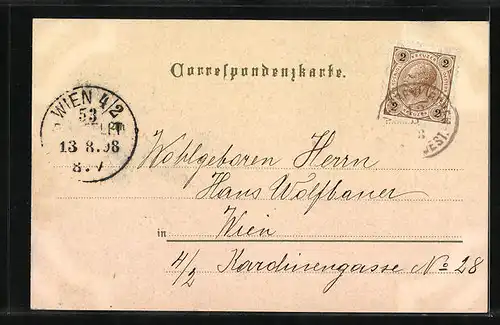 Correspondenzkarte.
2 2
2 2
WIEN 4/2
53
13 8.98
8.V
BEST.
Wohlgeboren Herrn
Hans Wolfbauer
in Wien
4/2 Karolinengasse No 28